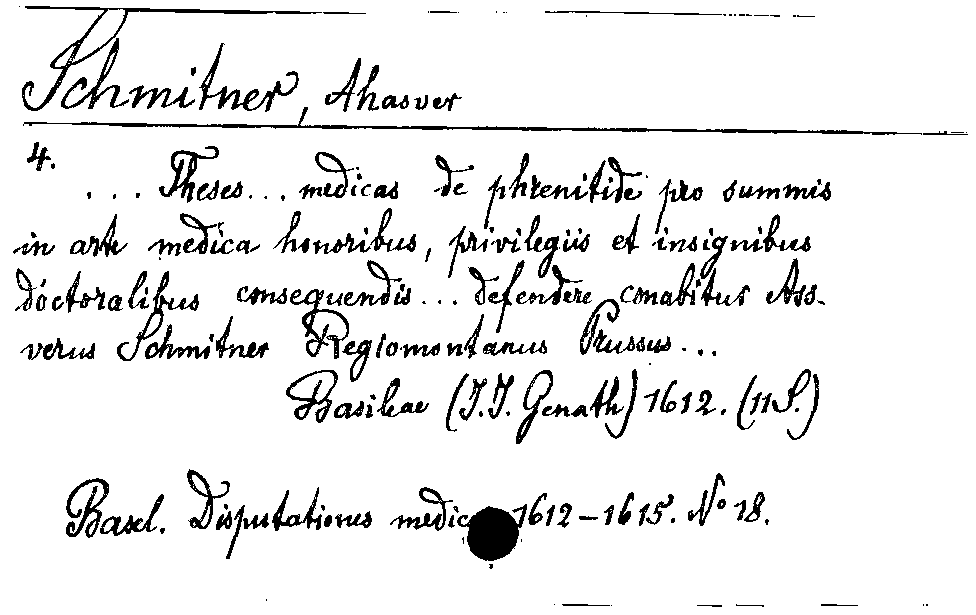 Schmitner, Ahasver
4.
... Theses... medicas de phrenitide pro summis
in arte medica honoribus, privilegiis et insignibus
doctoralibus consequendis... defendere conabitur Ass-
verus Schmitner Regiomontanus Prussus...
Basileae (J.J. Genath) 1612. (11 S.)
Basel. Disputationes 1612-1615. No 18.